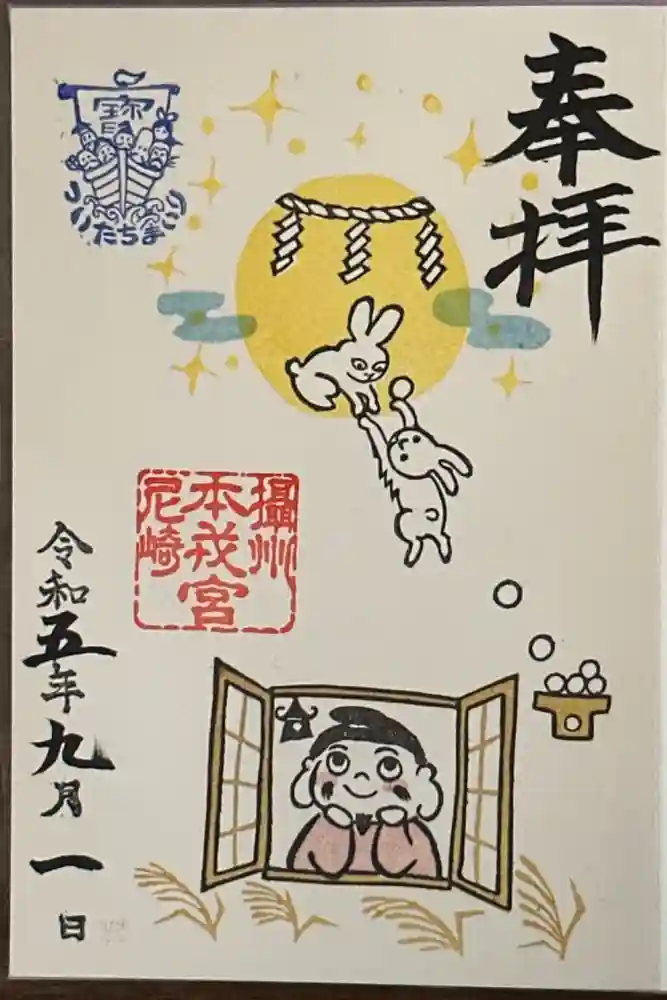 奉拝
寶
ついたちまいり
攝州
本戎宮
尼崎
令和五年九月一日